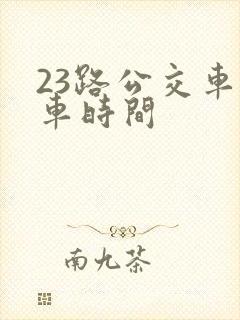 23路公交車
車時間
南九茶